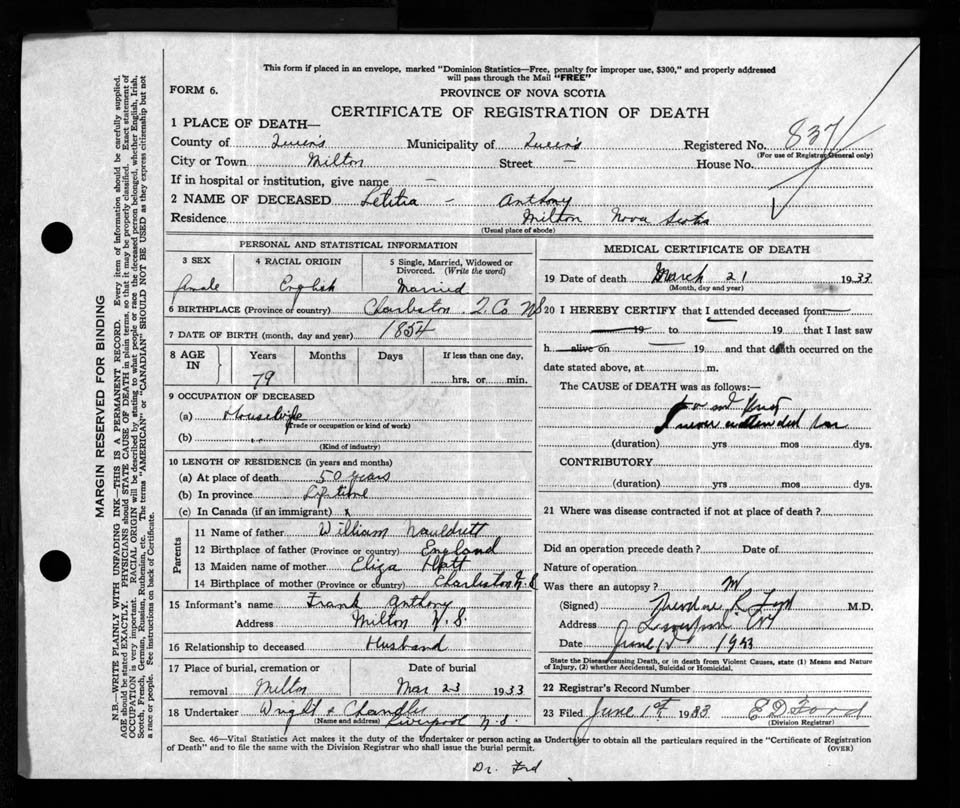 This form if placed in an envelope, marked "Dominion Statistics—Free, penalty for improper use, $300," and properly addressed
will pass through the Mail "FREE"
FORM 6.
PROVINCE OF NOVA SCOTIA
CERTIFICATE OF REGISTRATION OF DEATH
1 PLACE OF DEATH—
County of Queen's Municipality of Queen's Registered No. 837
(For use of Registrar General only)
City or Town Milton Street – House No.
If in hospital or institution, give name –
2 NAME OF DECEASED Letitia - Anthony
Residence Milton Nova Scotia
(Usual place of abode)
PERSONAL AND STATISTICAL INFORMATION
3 SEX
female
4 RACIAL ORIGIN
English
5 Single, Married, Widowed or
Divorced. (Write the word)
Married
6 BIRTHPLACE (Province or country) Charleston Q. Co. NS
7 DATE OF BIRTH (month, day and year) 1854
8 AGE IN
Years Months Days If less than one day,
79 hrs. or min.
9 OCCUPATION OF DECEASED
(a) Housewife
(Trade or occupation or kind of work)
(b)
(Kind of industry)
10 LENGTH OF RESIDENCE (in years and months)
(a) At place of death 50 years
(b) In province Lifetime
(c) In Canada (if an immigrant) x
Parents
11 Name of father William
12 Birthplace of father (Province or country) England
13 Maiden name of mother Eliza
14 Birthplace of mother (Province or country) Charleston N.S
15 Informant's name Frank Anthony
Address Milton N.S.
16 Relationship to deceased Husband
17 Place of burial, cremation or
removal Milton
Date of burial
Mar 23 1933
18 Undertaker Wright & Chandler
(Name and address) Liverpool N.S.
MEDICAL CERTIFICATE OF DEATH
19 Date of death March 21 1933
(Month, day and year)
20 I HEREBY CERTIFY that I attended deceased from
19 to 19 that I last saw
h alive on 19 and that death occurred on the
date stated above, at m.
The CAUSE of DEATH was as follows:—
I never attended her
(duration) yrs mos dys.
CONTRIBUTORY
(duration) yrs mos dys.
21 Where was disease contracted if not at place of death?
Did an operation precede death? Date of
Nature of operation
Was there an autopsy?
(Signed) Theodore R. Ford M.D.
Address Liverpool
Date June 1933
State the Disease causing Death, or in death from Violent Causes, state (1) Means and Nature
of Injury, (2) whether Accidental, Suicidal or Homicidal.
22 Registrar's Record Number
23 Filed June 1st 1933 E D Ford
(Division Registrar)
Sec. 46—Vital Statistics Act makes it the duty of the Undertaker or person acting as Undertaker to obtain all the particulars required in the "Certificate of Registration
of Death" and to file the same with the Division Registrar who shall issue the burial permit.
(OVER)
Dr. Ford
MARGIN RESERVED FOR BINDING
N.B.—WRITE PLAINLY WITH UNFADING INK—THIS IS A PERMANENT RECORD. Every item of information should be carefully supplied.
AGE should be stated EXACTLY. PHYSICIANS should STATE CAUSE OF DEATH in plain terms, so that it may be properly classified. Exact statement of
OCCUPATION is very important. RACIAL ORIGIN will be described by stating to what people or race the deceased person belonged, whether English, Irish,
Scotch, French, German, Russian, Ruthenian, etc. The terms "AMERICAN" or "CANADIAN" SHOULD NOT BE USED as they express citizenship but not
a race or people. See instructions on back of Certificate.